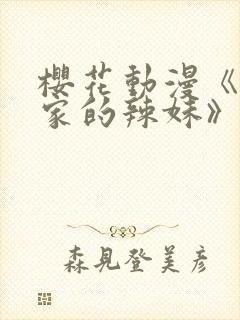 櫻花動漫《
家的辣妹》
森見登美彥